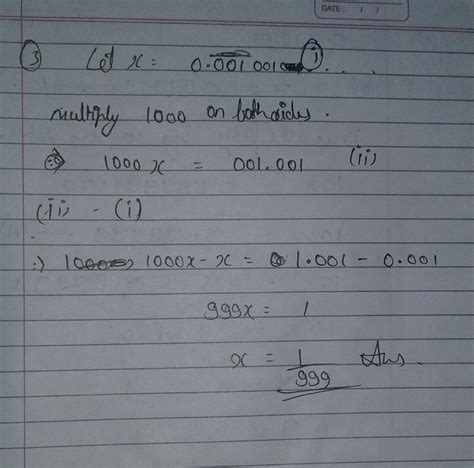 DATE: / /
③ Let x = 0.001 001 .... (i)
multiply 1000 on both sides.
⇒ 1000 x = 001.001 (ii)
(ii) - (i)
:) 1000x - x = 1.001 - 0.001
999x = 1
x = 1/999 Ans.